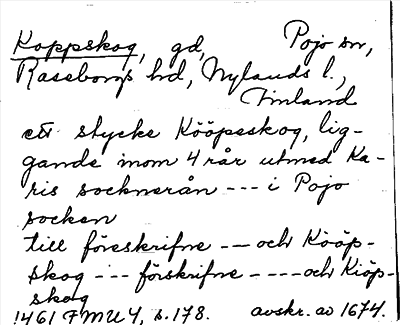 Koppskog, gd, Pojo sn,
Raseborgs hd, Nylands l.,
Finland
ett stycke Kööpsskog, lig-
gande inom 4 rår utmed Ka-
ris socknerån --- i Pojo
socken
till föreskrifne --- och Kööp-
skog --- förskrifne ---- och Kiöp-
skog
1461 FMU 4, s. 178. avskr. av 1674.